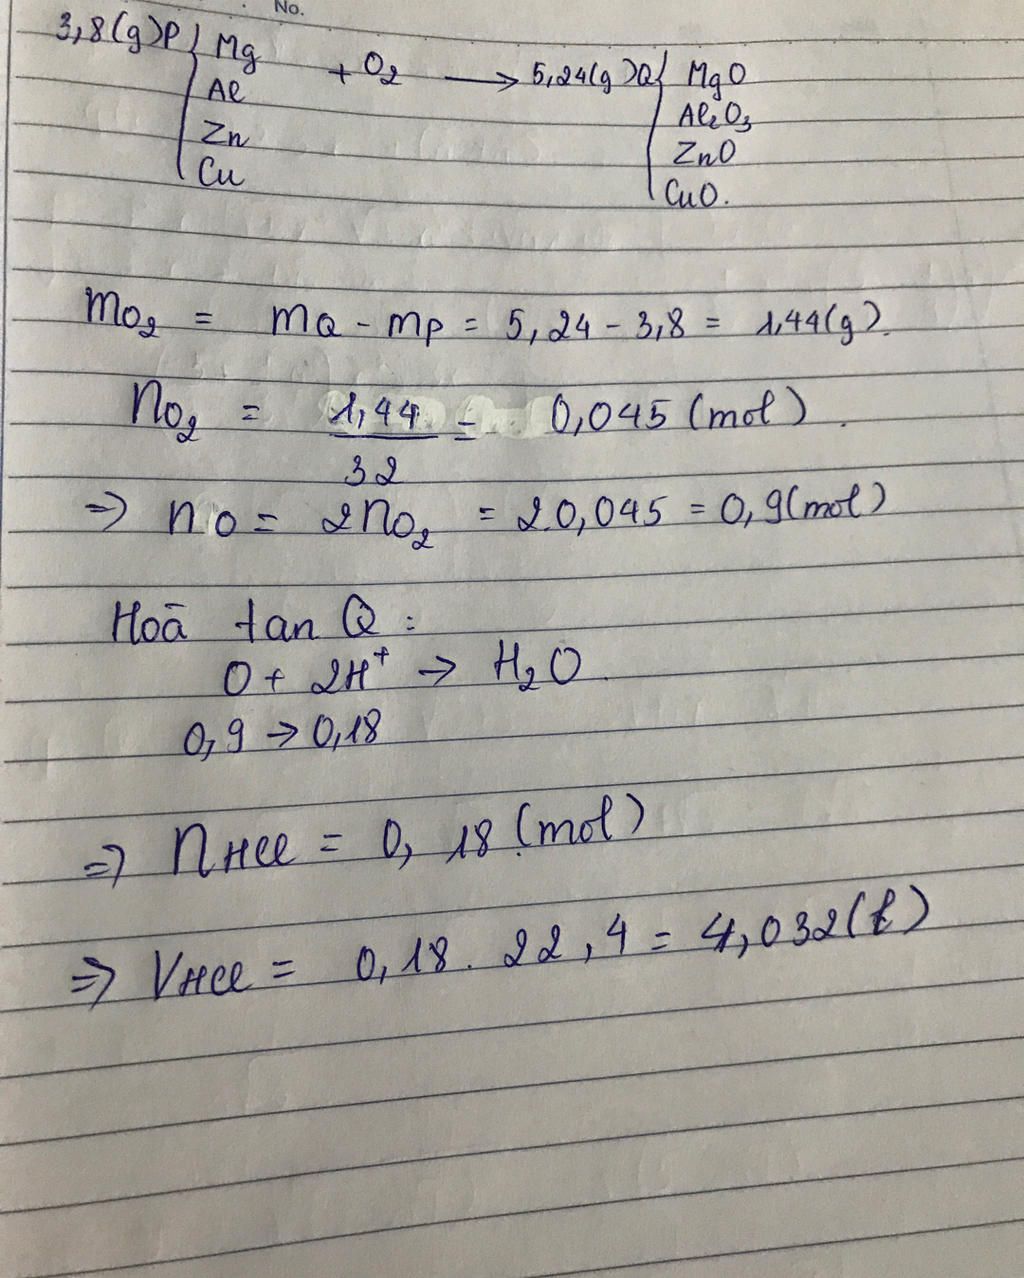 No.
3,8(g)P { Mg + O₂ → 5,24(g)Q { MgO
Al Al₂O₃
Zn ZnO
Cu CuO.
mO₂ = mQ - mP = 5,24 - 3,8 = 1,44(g).
nO₂ = 1,44/32 = 0,045 (mol).
=> nO = 2nO₂ = 2.0,045 = 0,9(mol)
Hoà tan Q :
O + 2H⁺ → H₂O.
0,9 → 0,18
=> nHCl = 0,18 (mol)
=> VHCl = 0,18. 22,4 = 4,032(l)